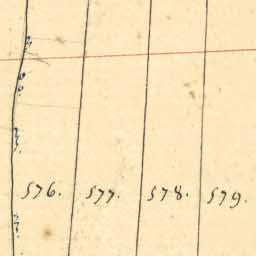 576. 577. 578. 579.